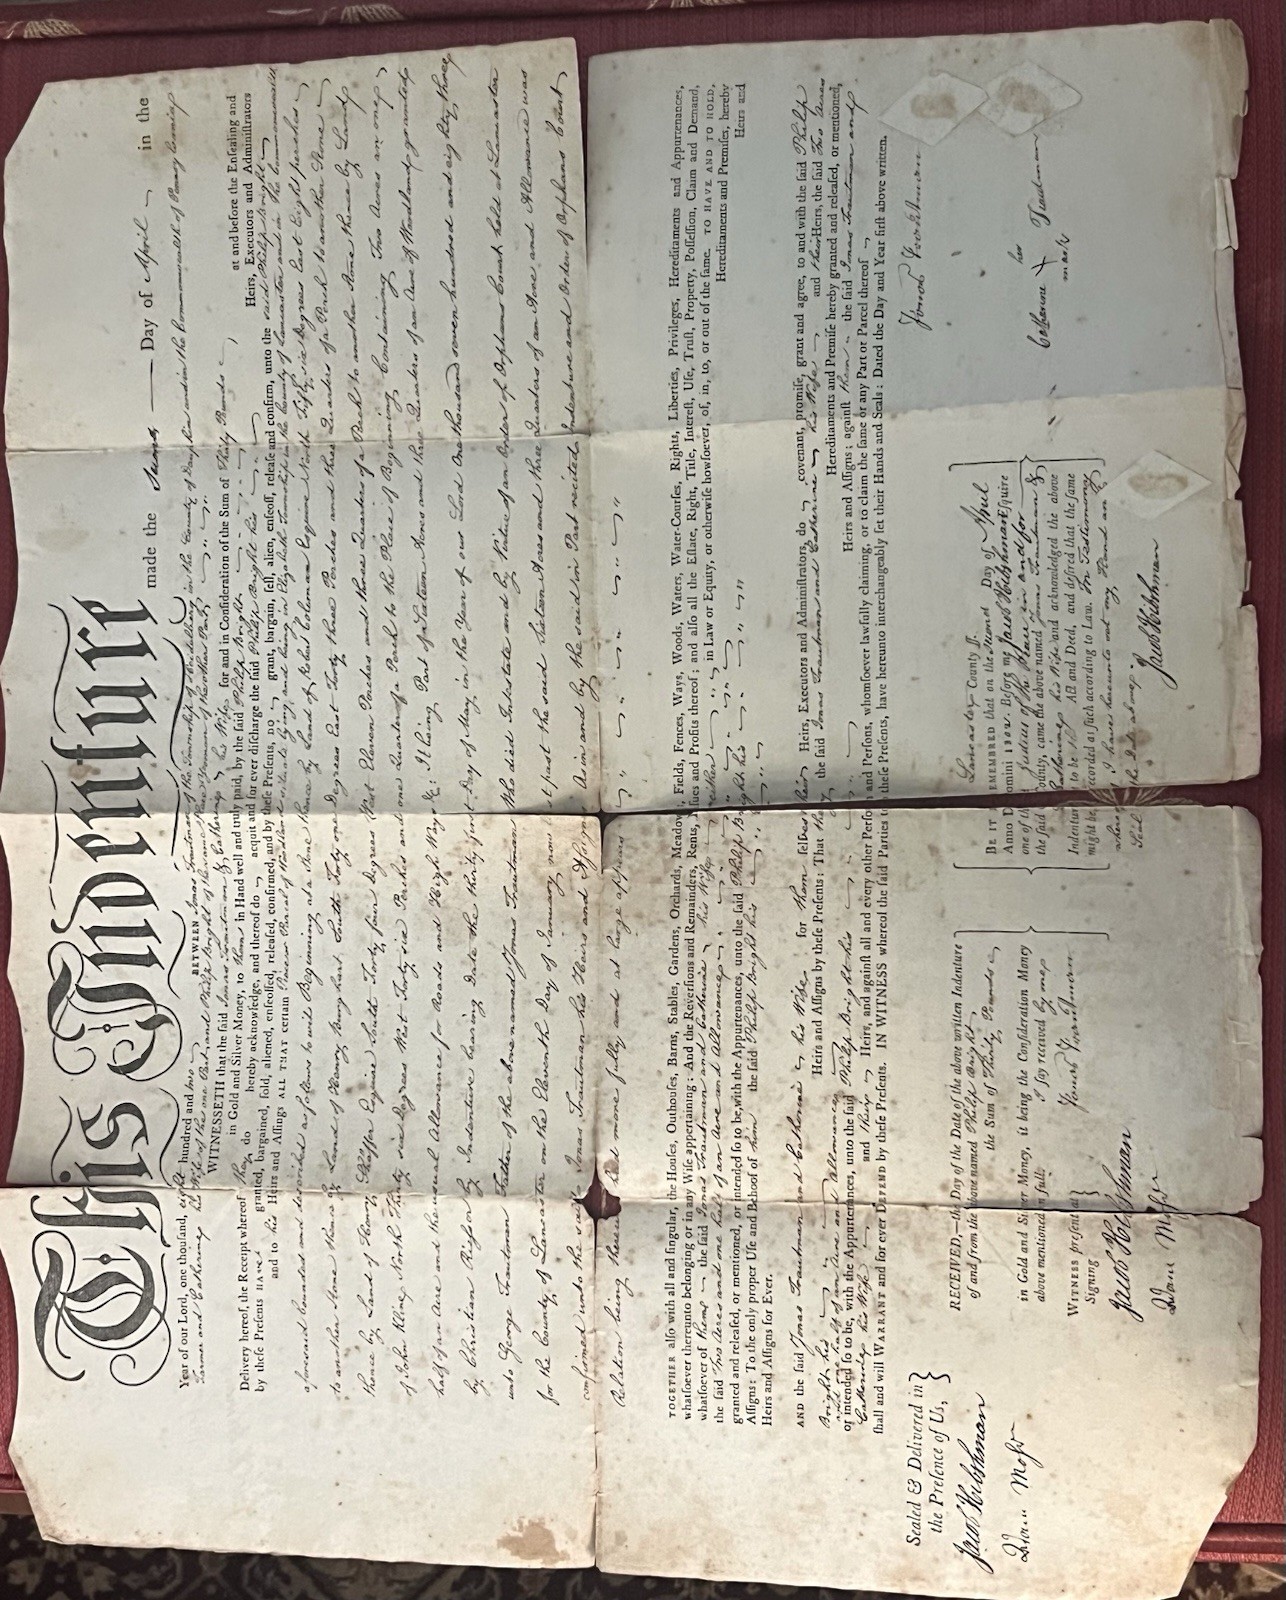 This Indenture made the Second Day of April in the
Year of our Lord, one thousand, eight hundred and two BETWEEN Jonas Trautman of the Township of in the County of Dauphin and in the Commonwealth of Pennsylvania
Farmer and Catherine his Wife of the one Part, and Philip Bright of the same Place Yeoman of the other Part
WITNESSETH that the said Jonas Trautman & Catherine his Wife for and in Consideration of the Sum of Thirty Pounds
in Gold and Silver Money, to them in Hand well and truly paid, by the said Philip Bright at and before the Ensealing and
Delivery hereof, the Receipt whereof they do hereby acknowledge, and thereof do acquit and for ever discharge the said Philip Bright his Heirs, Executors and Administrators
by these Presents Have granted, bargained, sold, aliened, enfeoffed, released, confirmed, and by these Presents, do grant, bargain, sell, alien, enfeoff, release and confirm, unto the said Philip Bright
and to his Heirs and Assigns ALL THAT certain Piece or Parcel of Woodland situate lying and being in Elizabeth Township in the County of Lancaster and in the Commonwealth
aforesaid bounded and described as follows to wit Beginning at a Stone thence by Land of Robert Coleman Esquire North Fifty six Degrees East Eight perches
to another Stone thence by Land of Henry South Forty one Degrees East Forty three Perches and three Quarters of a Perch to another Stone
thence by Land of Henry Shaffer Esquire South Forty four Degrees West Eleven Perches and three Quarters of a Perch to another Stone thence by Land
of John Kling North Thirty six Degrees West Forty six Perches and one Quarter of a Perch to the Place of Beginning Containing Two Acres an one
half of an Acre and the usual Allowance for Roads and High Ways &c: It being Part of Sixteen Acres and three Quarters of an Acre of Woodland granted
by Christian by Indenture bearing Date the thirty first Day of May in the Year of our Lord One thousand seven hundred and eighty three
unto George Trautman Father of the above named Jonas Trautman Who died Intestate and by Virtue of an Order of Orphans Court held at Lancaster
for the County of Lancaster on the Eleventh Day of January now last past the said Sixteen Acres and three Quarters of an Acre and Allowance was
confirmed unto the said Jonas Trautman his Heirs and Assigns As in and by the said in Part recited Indenture and Order of Orphans Court
Relation being thereunto had more fully and at large appears
TOGETHER also with all and singular, the Houses, Outhouses, Barns, Stables, Gardens, Orchards, Meadows, Fields, Fences, Ways, Woods, Waters, Water-Courses, Rights, Liberties, Privileges, Hereditaments and Appurtenances,
whatsoever thereunto belonging or in any Wise appertaining; And the Reversions and Remainders, Rents, Issues and Profits thereof; and also all the Estate, Right, Title, Interest, Use, Trust, Property, Possession, Claim and Demand,
whatsoever of them the said Jonas Trautman and Catherine his Wife either in Law or Equity, or otherwise howsoever, of, in, to, or out of the same. TO HAVE AND TO HOLD,
the said Two Acres and one half of an Acre and Allowance Hereditaments and Premises, hereby
granted and released, or mentioned, or intended so to be, with the Appurtenances, unto the said Philip Bright his Heirs and
Assigns: To the only proper Use and Behoof of him the said Philip Bright his
Heirs and Assigns for Ever.
AND the said Jonas Trautman and Catherine his Wife for them selves their Heirs, Executors and Administrators, do covenant, promise, grant and agree, to and with the said Philip
Bright his Heirs and Assigns by these Presents: That they the said Jonas Trautman and Catherine his Wife and their Heirs, the said Two Acres
and one half of an Acre and Allowance Hereditaments and Premise hereby granted and released, or mentioned,
or intended so to be, with the Appurtenances, unto the said Philip Bright his Heirs and Assigns; against them the said Jonas Trautman and
Catherine his Wife and their Heirs, and against all and every other Person and Persons, whomsoever lawfully claiming, or to claim the same or any Part or Parcel thereof
shall and will WARRANT and for ever DEFEND by these Presents. IN WITNESS whereof the said Parties to these Presents, have hereunto interchangeably set their Hands and Seals: Dated the Day and Year first above written.
Sealed & Delivered in
the Presence of Us,
Jacob Hibshman
Jonas Trautman
Catherine her X mark Trautman
RECEIVED,—the Day of the Date of the above written Indenture
of and from the above named Philip Bright
the Sum of Thirty Pounds
in Gold and Silver Money, it being the Consideration Money
above mentioned in full.
I say received by me
Jonas Trautman
WITNESS present at
Signing
Jacob Hibshman
Lancaster County ss.
BE IT REMEMBERED that on the second Day of April
Anno Domini 1802. Before me Jacob Hibshman Esquire
one of the Justices of the Peace in and for
the said County, came the above named Jonas Trautman &
Catherine his Wife and acknowledged the above
Indenture to be Act and Deed, and desired that the same
might be recorded as such according to Law. In Testimony
whereof I have hereunto set my Hand and
Seal the Date above
Jacob Hibshman